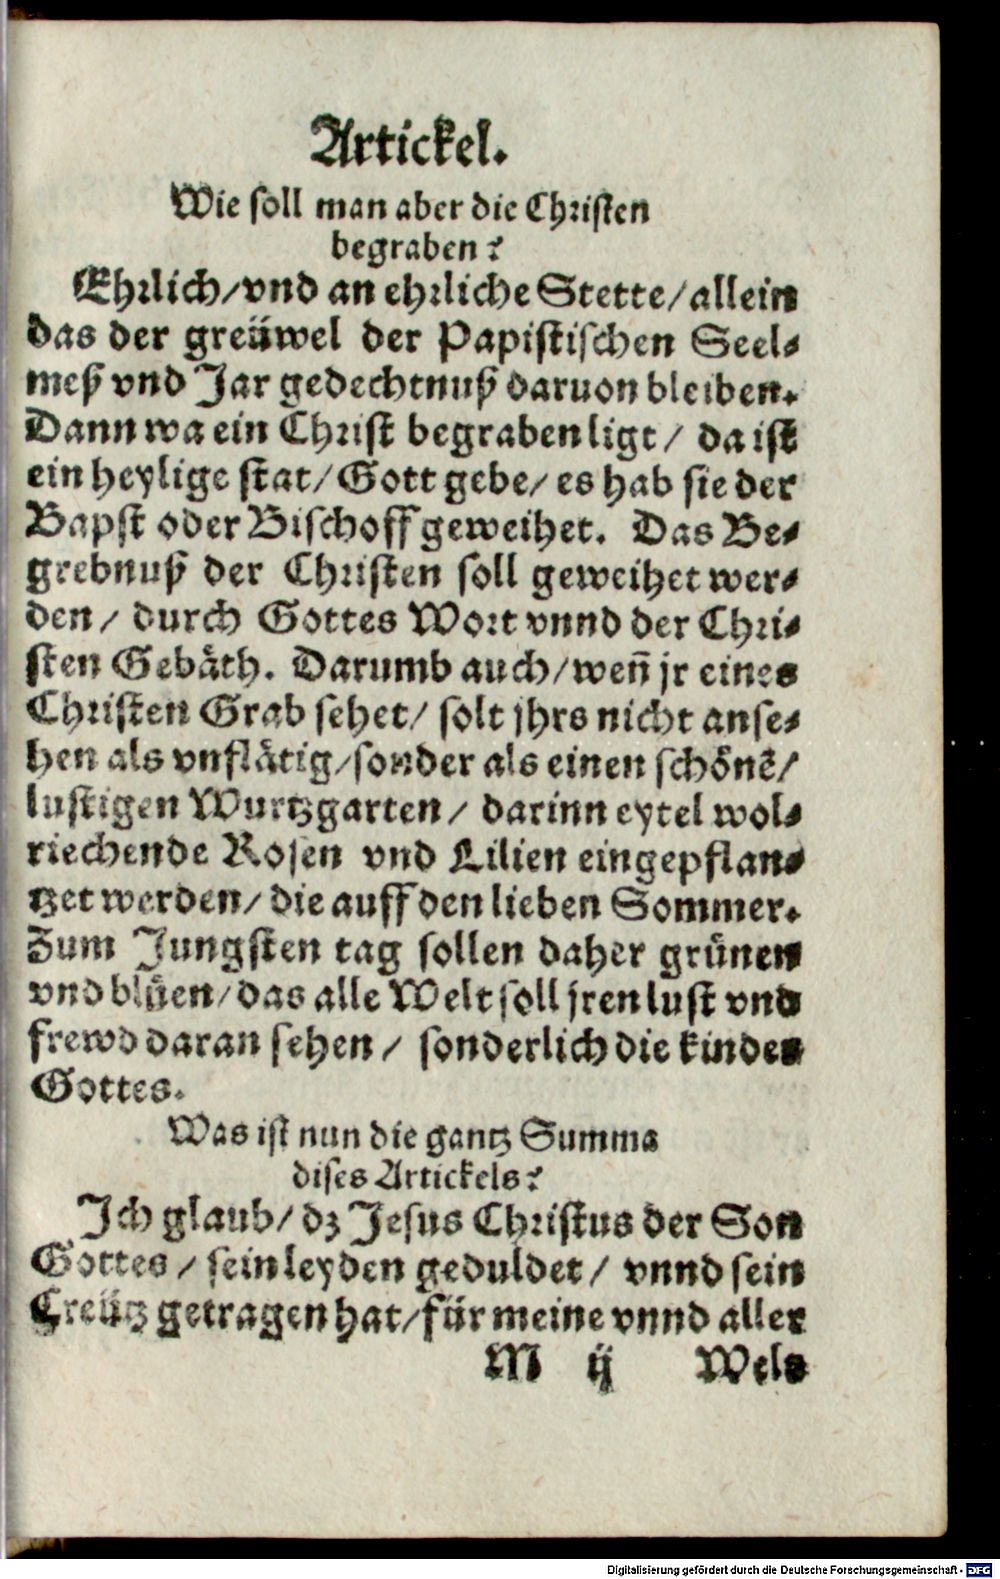 Artickel.
Wie soll man aber die Christen
begraben?
Ehrlich/vnd an ehrliche Stette/allein
das der greüwel der Papistischen Seel-
meß vnd Jar gedechtnuß daruon bleiben.
Dann wa ein Christ begraben ligt/ da ist
ein heylige stat/ Gott gebe/ es hab sie der
Bapst oder Bischoff geweihet. Das Be-
grebnuß der Christen soll geweihet wer-
den/ durch Gottes Wort vnnd der Chri-
sten Gebäth. Darumb auch/ weñ jr eines
Christen Grab sehet/ solt jhrs nicht anse-
hen als vnflätig/sonder als einen schönẽ/
lustigen Wurtzgarten/ darinn eytel wol-
riechende Rosen vnd Lilien eingepflan-
tzet werden/ die auff den lieben Sommer.
Zum Jungsten tag sollen daher grünen
vnd blüen/das alle Welt soll jren lust vnd
frewd daran sehen/ sonderlich die kinder
Gottes.
Was ist nun die gantz Summa
dises Artickels?
Jch glaub/ dz Jesus Christus der Son
Gottes/ sein leyden geduldet/ vnnd sein
Creütz getragen hat/für meine vnnd aller
M ij Wel-
Digitalisierung gefördert durch die Deutsche Forschungsgemeinschaft - DFG